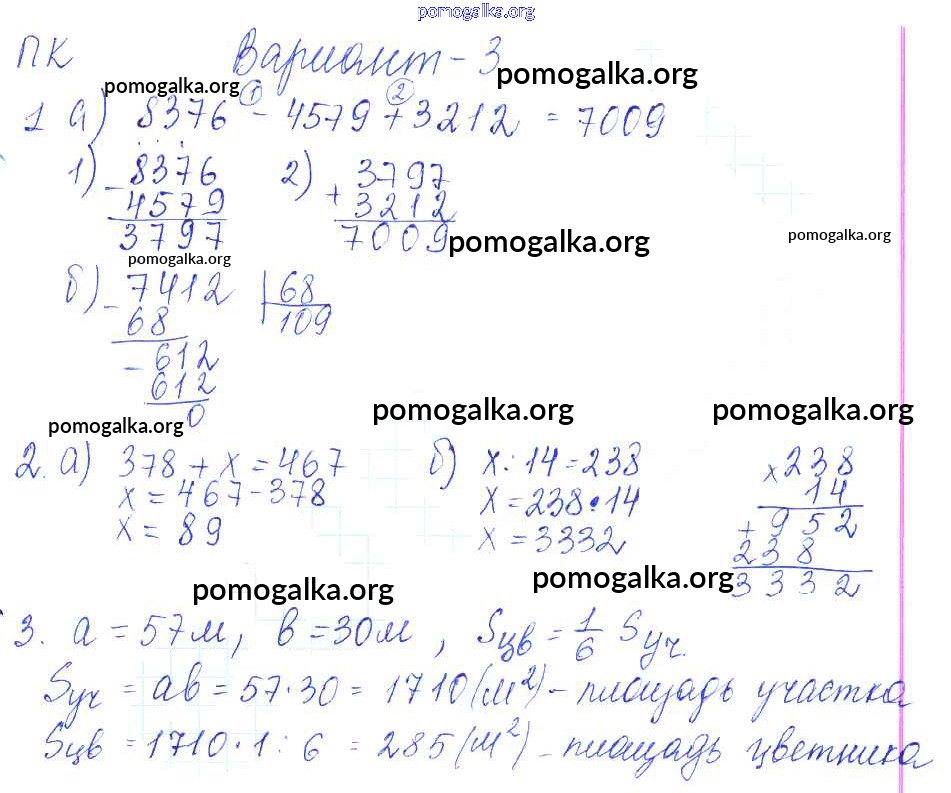 pomogalka.org
ПК Вариант - 3
pomogalka.org pomogalka.org
1 а) 8376 - 4579 + 3212 = 7009
1 2
1) 8376 2) 3797
- 4579 + 3212
3797 7009
pomogalka.org pomogalka.org
pomogalka.org
б) - 7412 | 68
68 109
- 612
612
0
pomogalka.org pomogalka.org pomogalka.org
2. а) 378 + x = 467 б) x : 14 = 238 x 238
x = 467 - 378 x = 238 · 14 14
x = 89 x = 3332 + 952
238
3332
pomogalka.org pomogalka.org
3. a = 57 м, в = 30 м, Sцв = 1/6 Sуч.
Sуч = ав = 57 · 30 = 1710 (м²) - площадь участка
Sцв = 1710 · 1 : 6 = 285 (м²) - площадь цветника